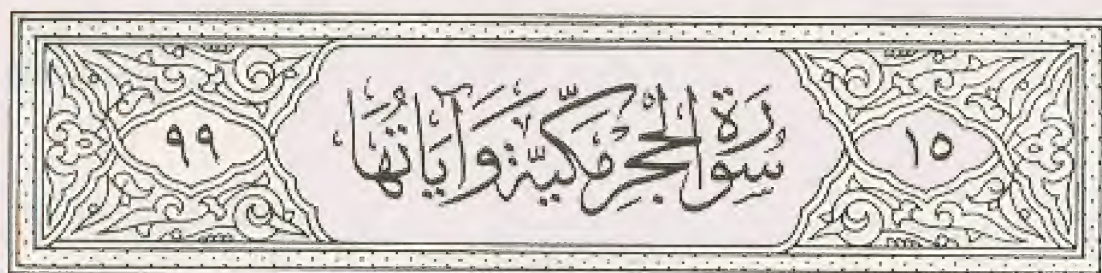 ١٥ سُورَةُ الْحِجْرِ مَكِّيَّة وَآيَاتُهَا ٩٩